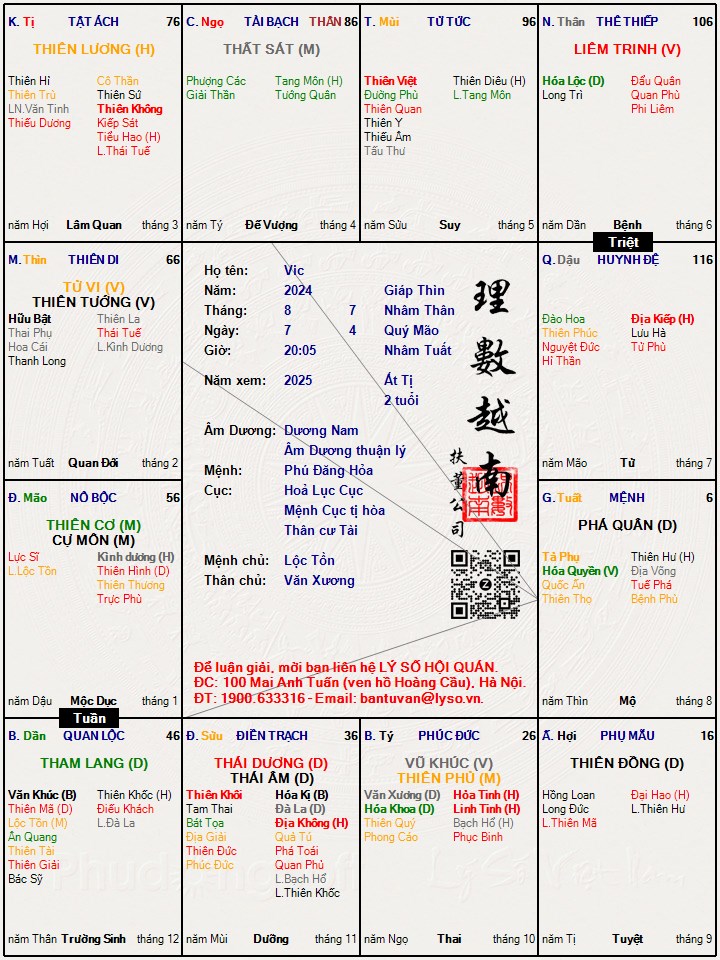 K. Tị TẬT ÁCH 76
THIÊN LƯƠNG (H)
Thiên Hỉ Cô Thần
Thiên Trù Thiên Sứ
LN.Văn Tinh Thiên Không
Thiếu Dương Kiếp Sát
Tiểu Hao (H)
L.Thái Tuế
năm Hợi Lâm Quan tháng 3
C. Ngọ TÀI BẠCH THÂN 86
THẤT SÁT (M)
Phượng Các Tang Môn (H)
Giải Thần Tướng Quân
năm Tý Đế Vượng tháng 4
T. Mùi TỬ TỨC 96
Thiên Việt Thiên Diêu (H)
Đường Phù L.Tang Môn
Thiên Quan
Thiên Y
Thiếu Âm
Tấu Thư
năm Sửu Suy tháng 5
N. Thân THÊ THIẾP 106
LIÊM TRINH (V)
Hóa Lộc (D) Đẩu Quân
Long Trì Quan Phù
Phi Liêm
năm Dần Bệnh tháng 6
Triệt
M. Thìn THIÊN DI 66
TỬ VI (V)
THIÊN TƯỚNG (V)
Hữu Bật Thiên La
Thai Phụ Thái Tuế
Hoa Cái L.Kình Dương
Thanh Long
năm Tuất Quan Đới tháng 2
Họ tên: Vic
Năm: 2024 Giáp Thìn
Tháng: 8 7 Nhâm Thân
Ngày: 7 4 Quý Mão
Giờ: 20:05 Nhâm Tuất
Năm xem: 2025 Ất Tị
2 tuổi
Âm Dương: Dương Nam
Âm Dương thuận lý
Mệnh: Phú Đăng Hỏa
Cục: Hoả Lục Cục
Mệnh Cục tị hòa
Thân cư Tài
Mệnh chủ: Lộc Tồn
Thân chủ: Văn Xương
理數越南
扶董公司
Để luận giải, mời bạn liên hệ LÝ SỐ HỘI QUÁN.
ĐC: 100 Mai Anh Tuấn (ven hồ Hoàng Cầu), Hà Nội.
ĐT: 1900.633316 - Email: bantuvan@lyso.vn.
Q. Dậu HUYNH ĐỆ 116
Đào Hoa Địa Kiếp (H)
Thiên Phúc Lưu Hà
Nguyệt Đức Tử Phù
Hỉ Thần
năm Mão Tử tháng 7
Đ. Mão NÔ BỘC 56
THIÊN CƠ (M)
CỰ MÔN (M)
Lực Sĩ Kình dương (H)
L.Lộc Tồn Thiên Hình (D)
Thiên Thương
Trực Phù
năm Dậu Mộc Dục tháng 1
G. Tuất MỆNH 6
PHÁ QUÂN (D)
Tả Phụ Thiên Hư (H)
Hóa Quyền (V) Địa Võng
Quốc Ấn Tuế Phá
Thiên Thọ Bệnh Phù
năm Thìn Mộ tháng 8
Tuần
B. Dần QUAN LỘC 46
THAM LANG (D)
Văn Khúc (B) Thiên Khốc (H)
Thiên Mã (D) Điếu Khách
Lộc Tồn (M) L.Đà La
Ân Quang
Thiên Tài
Thiên Giải
Bác Sỹ
năm Thân Trường Sinh tháng 12
Đ. Sửu ĐIỀN TRẠCH 36
THÁI DƯƠNG (D)
THÁI ÂM (D)
Thiên Khôi Hóa Kị (B)
Tam Thai Đà La (D)
Bát Tọa Địa Không (H)
Địa Giải Quả Tú
Thiên Đức Phá Toái
Phúc Đức Quan Phủ
L.Bạch Hổ
L.Thiên Khốc
năm Mùi Dưỡng tháng 11
B. Tý PHÚC ĐỨC 26
VŨ KHÚC (V)
THIÊN PHỦ (M)
Văn Xương (D) Hỏa Tinh (H)
Hóa Khoa (D) Linh Tinh (H)
Thiên Quý Bạch Hổ (H)
Phong Cáo Phục Binh
năm Ngọ Thai tháng 10
Ấ. Hợi PHỤ MẪU 16
THIÊN ĐỒNG (D)
Hồng Loan Đại Hao (H)
Long Đức L.Thiên Hư
L.Thiên Mã
năm Tị Tuyệt tháng 9